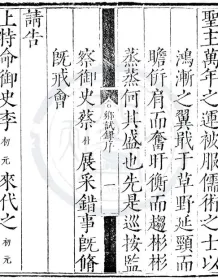 聖主萬年之運被服儒術之士以
鴻漸之翼戢于草野延頸而
瞻併肩而奮盱衡而趨彬彬
蒸蒸何其盛也先是巡按監
鄉試錄序 一
察御史蔡 朴 展采錯事既脩
既戒會
請告
上特命御史李 初元 來代之 初元